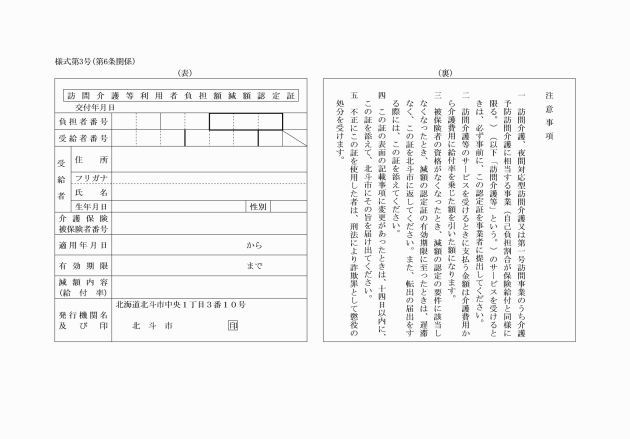 様式第3号(第6条関係)
(表)
訪問介護等利用者負担額減額認定証
交付年月日
負担者番号
受給者番号
受給者
住所
フリガナ
氏名
生年月日
性別
介護保険
被保険者番号
適用年月日
から
有効期限
まで
減額内容
(給付率)
発行機関名
及び印
北海道北斗市中央1丁目3番10号
北斗市
印
(裏)
注意事項
一 訪問介護、夜間対応型訪問介護又は第一号訪問事業のうち介護
予防訪問介護に相当する事業(自己負担割合が保険給付と同様に
限る。)(以下「訪問介護等」という。)のサービスを受けると
きは、必ず事前に、この認定証を事業者に提出してください。
二 訪問介護等のサービスを受けるときに支払う金額は介護費用か
ら介護費用に給付率を乗じた額を引いた額になります。
三 被保険者の資格がなくなったとき、減額の認定の要件に該当し
なくなったとき、減額の認定証の有効期限に至ったときは、遅滞
なく、この証を北斗市に返してください。また、転出の届出をす
る際には、この証を添えてください。
四 この証の表面の記載事項に変更があったときは、十四日以内に、
この証を添えて、北斗市にその旨を届け出てください。
五 不正にこの証を使用した者は、刑法により詐欺罪として懲役の
処分を受けます。